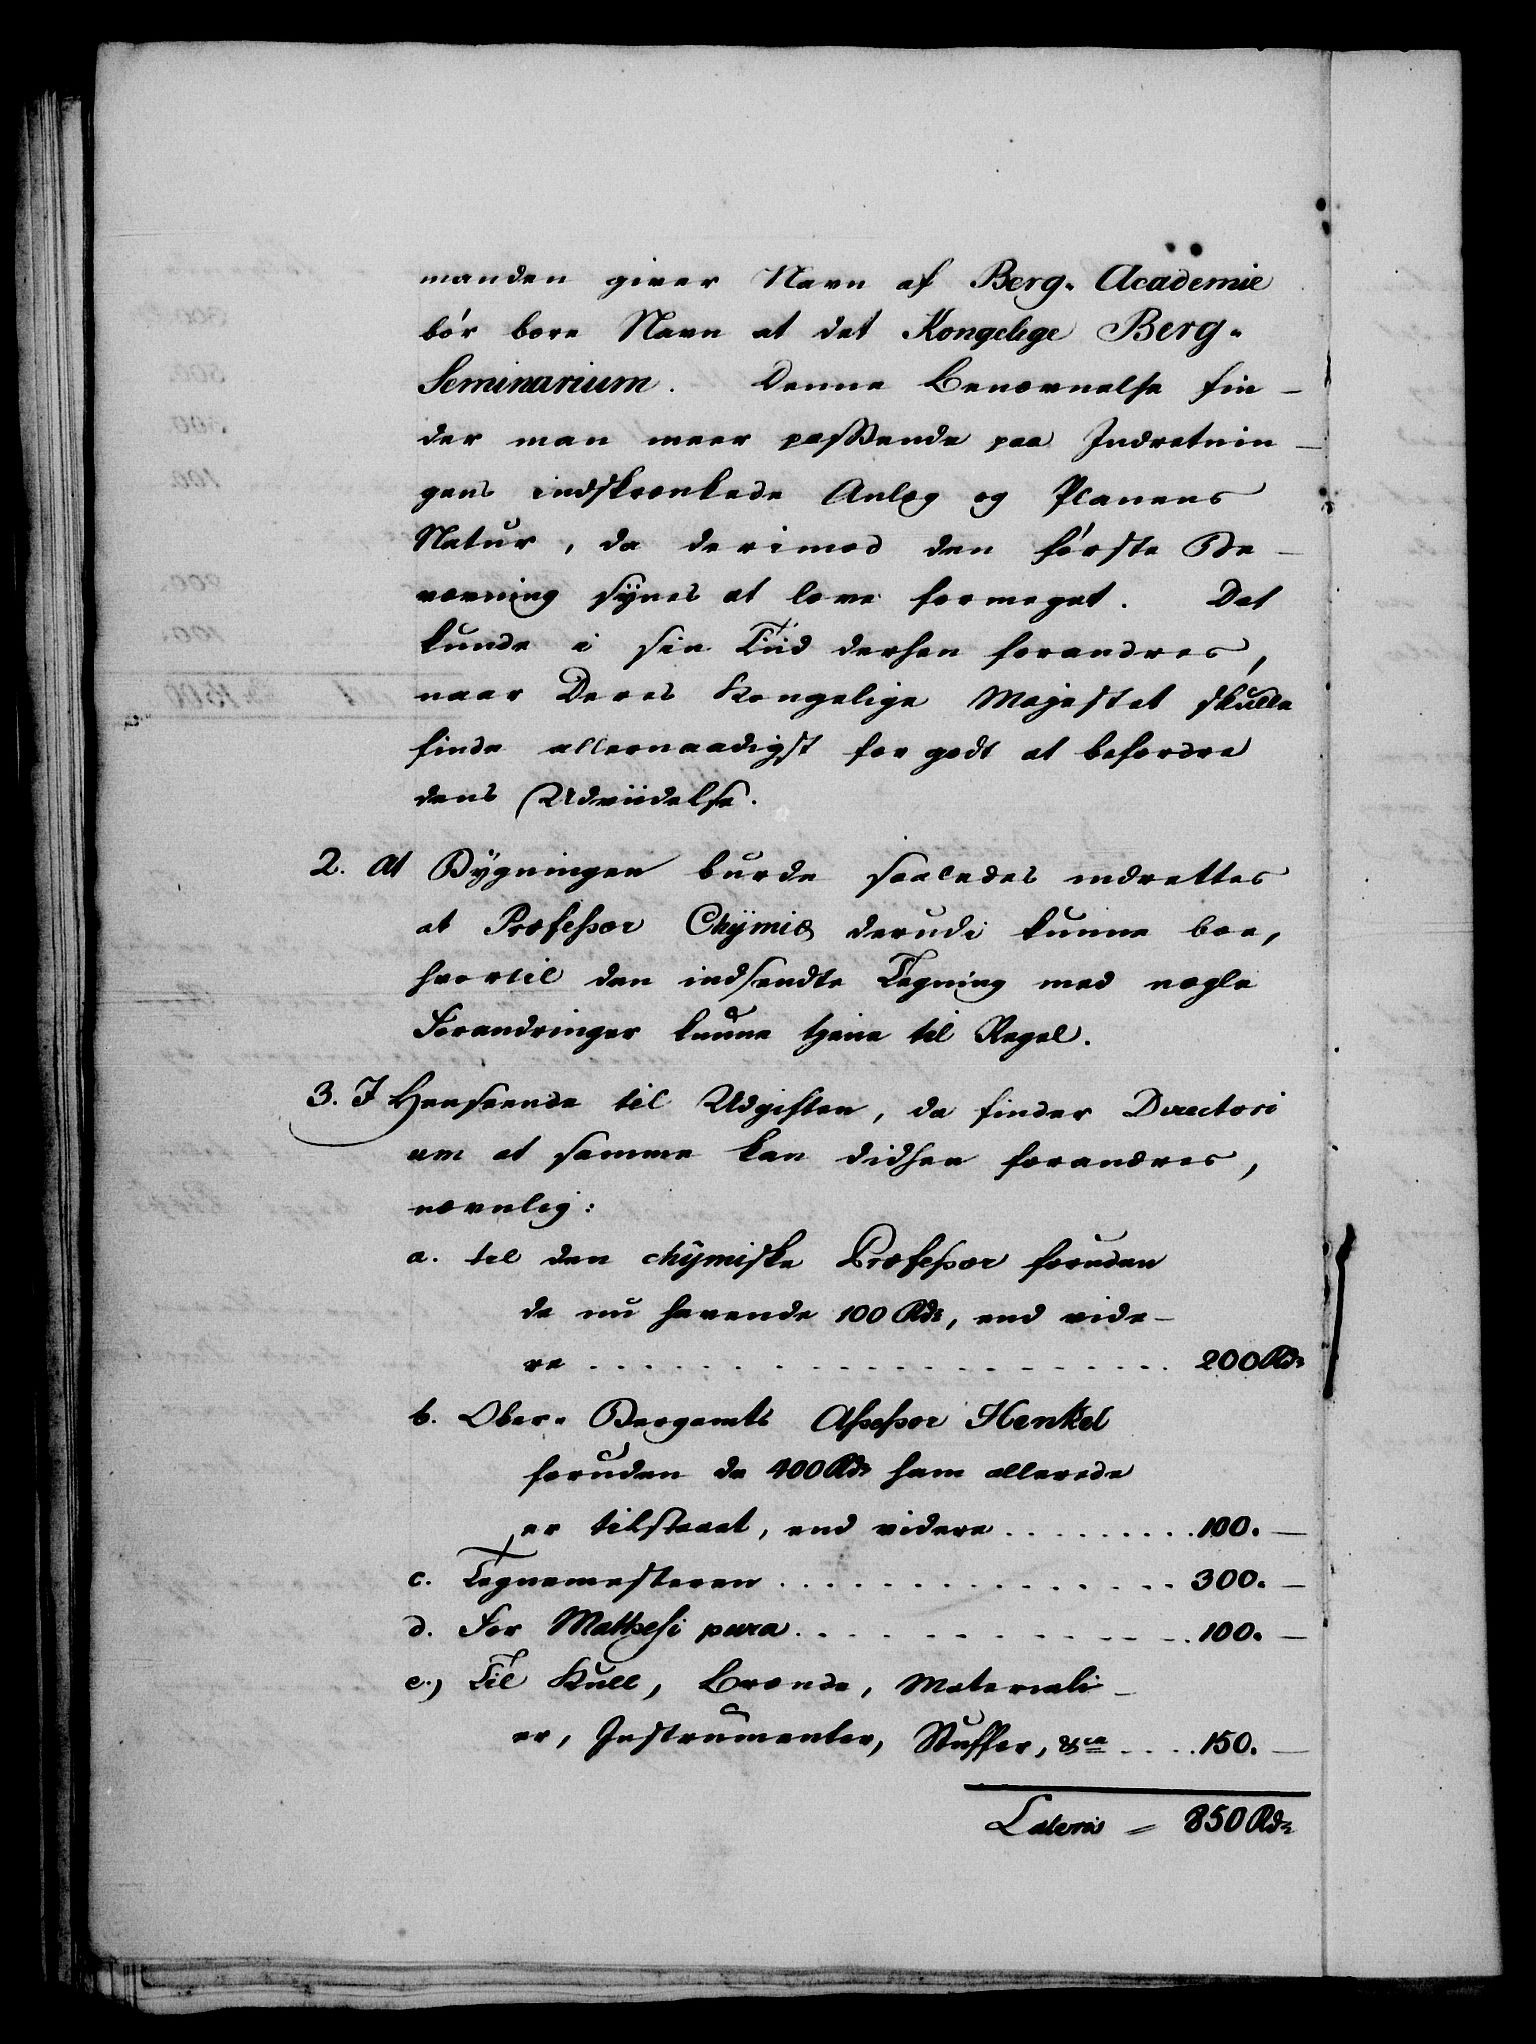 manden giver Navn af Berg-Academie
bör bære Navn at det Kongelige Berg-
Seminarium. Denne Benævnelse fin-
der man meer passende paa Indretnin-
gens indskrænkede Anlæg og Planens
Natur, da derimod den første Be-
nævning synes at love formeget. Det
kunde i sin Tiid derhen forandres,
naar Deres Kongelige Majestet skulle
finde allernaadigst for godt at befordre
dens Udviidelse.
2. At Bygningen burde saaledes indrettes
at Professor Chymiæ derudi kunne boe,
hvortil den indsendte Tegning med nogle
Forandringer kunne tjene til Regel.
3. I Henseende til Udgiften, da finder Directori
um at samme kan didhen forandres,
nævnlig:
a. til den chymiske Professor foruden
de nu havende 100 Rdr, end vide-
re . . . . . . . . . . . . . . . . . . . . 200 Rdr
b. Ober-Bergamts Assessor Henkel
foruden de 400 Rdr ham allerede
er tilstaaet, end videre . . . . . . . . . 100. —
c. Tegnemesteren . . . . . . . . . . . . . . . 300. —
d. For Mathesi pura . . . . . . . . . . . . . 100. —
e.) Til Kull, Brænde, Materiali-
er, Instrumenter, Stuffer, &ca . . . . 150. —
Lateris — 850 Rdr